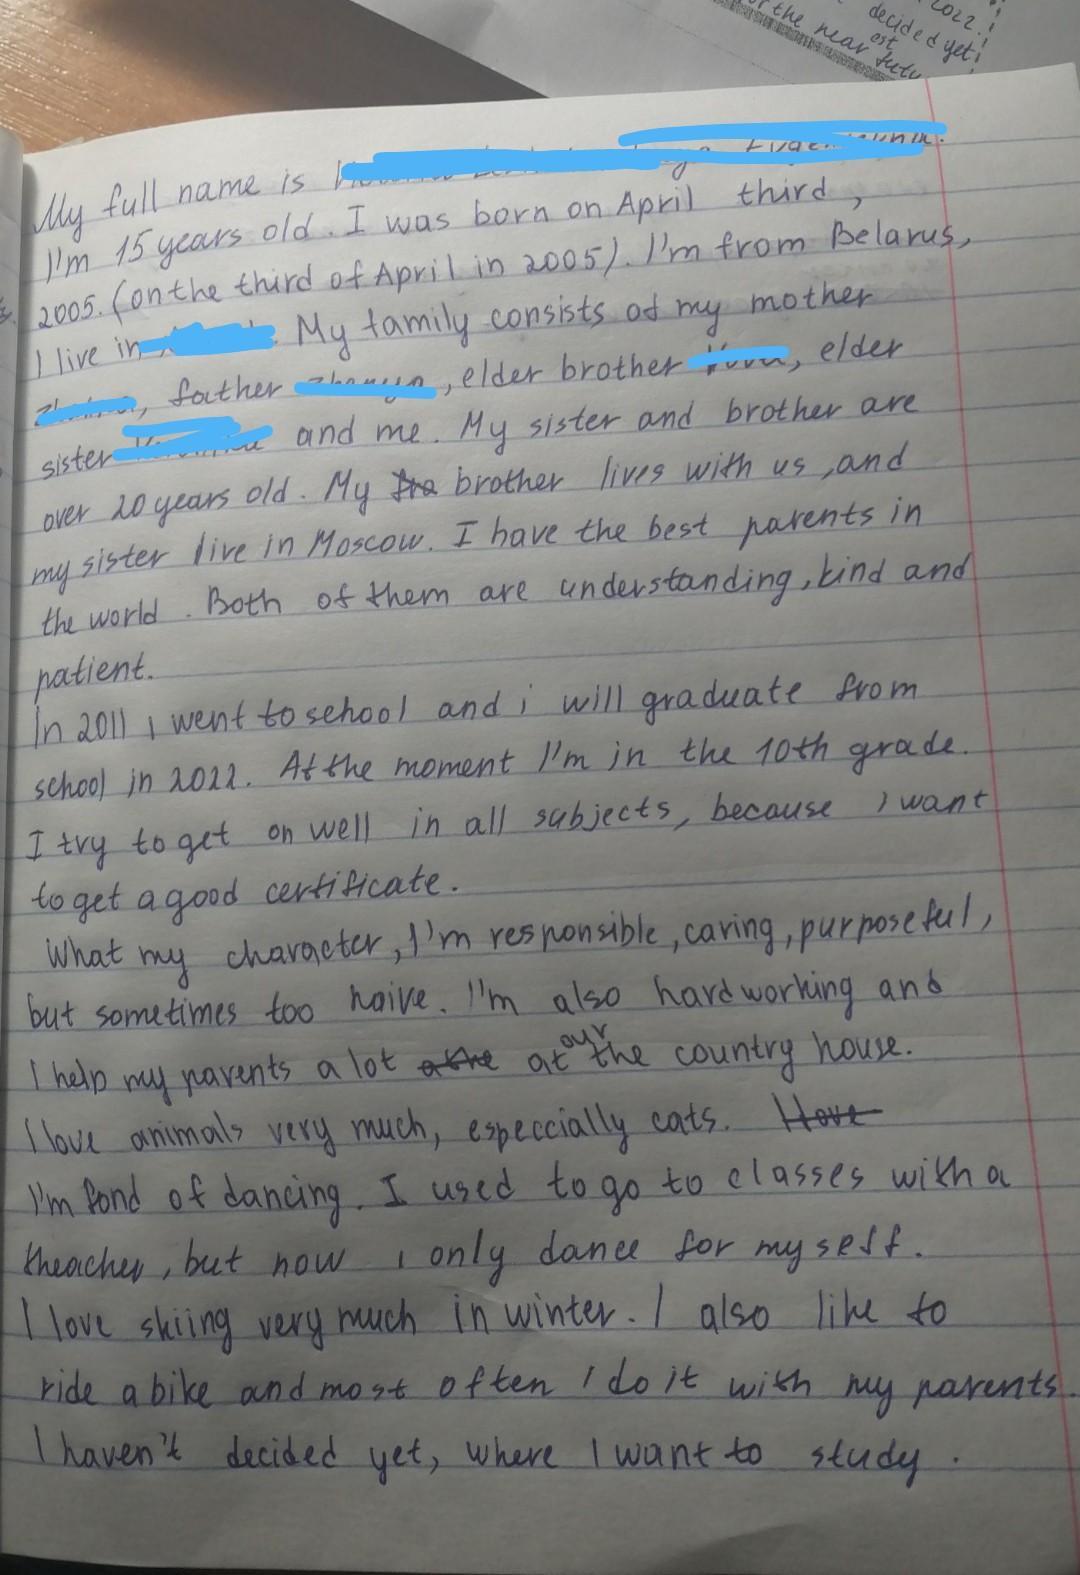 2022.
decided yet
est
for the near futu
My full name is
I'm 15 years old. I was born on April third,
2005. (on the third of April in 2005). I'm from Belarus,
I live in . My family consists of my mother
, father , elder brother , elder
sister and me. My sister and brother are
over 20 years old. My bro brother lives with us, and
my sister live in Moscow. I have the best parents in
the world. Both of them are understanding, kind and
patient.
In 2011 i went to school and i will graduate from
school in 2022. At the moment I'm in the 10th grade.
I try to get on well in all subjects, because i want
to get a good certificate.
What my character, I'm responsible, caring, purposeful,
but sometimes too naive. I'm also hardworking and
our
I help my parents a lot at the country house.
I love animals very much, especcially cats. Hove
I'm fond of dancing. I used to go to classes with a
theacher, but now i only dance for my self.
I love skiing very much in winter. I also like to
ride a bike and most often I do it with my parents.
I haven't decided yet, where I want to study.